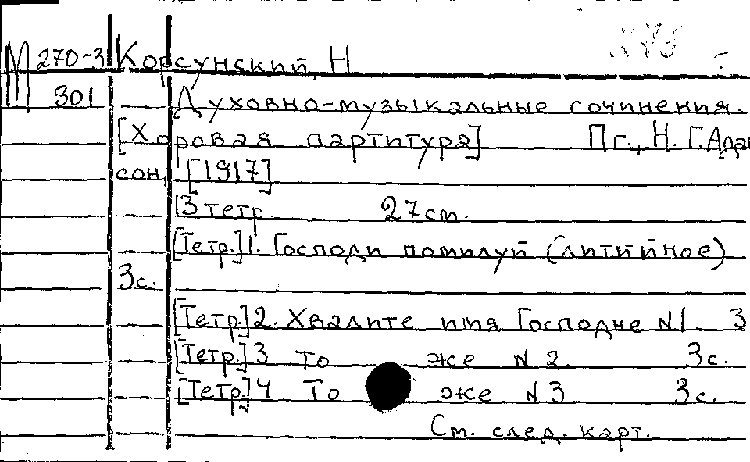 М 270-3 Корсунский, Н
301 Духовно-музыкальные сочинения.
[Хоровая партитура] Пг., Н. Г. Адам
сон, [1917].
[3 тетр. 27 см.
[Тетр.] 1. Господи помилуй (литийное)
3 с.
[Тетр.] 2. Хвалите имя Господне N1. 3
[Тетр.] 3 То же N 2. 3 с.
[Тетр.] 4 То же N 3 3 с.
См. след. карт.